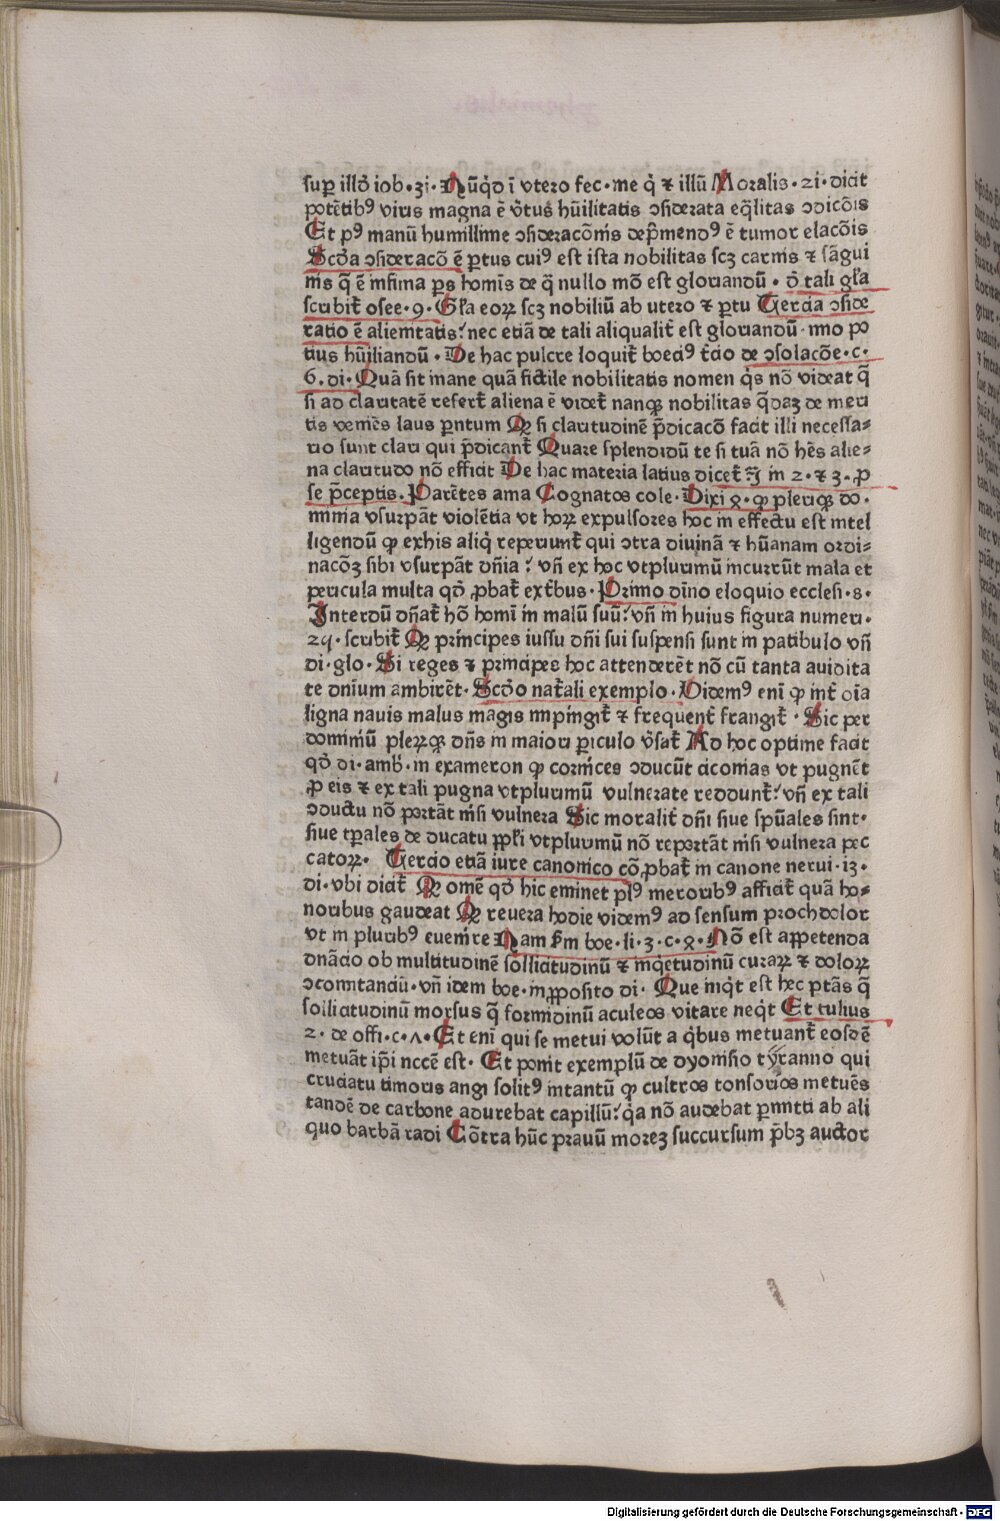 sup illo᷒ iob·31· Nūq̇d ī vtero fec·me q̇ ⁊ illū Moralis·21·dicit
potētibꝰ viris magna ē v̓tus hūilitatis ↄsiderata eq̄litas ↄdicōis
Et pꝰ manū humillime ↄsideracōnis dep̄mendꝰ ē tumor elacōis
Scd̓a ↄsideracō ē ꝑtus cuiꝰ est ista nobilitas scꝫ carnis ⁊ sāgui
nis q̄ ē infima ꝑs homīs de q̄ nullo mō est gloriandū · d̓ tali gl̓a
scribit̓ osee·9· Gl̓a eoꝝ scꝫ nobiliū ab utero ⁊ ꝑtu Tercia ↄside
ratio ē alienitatis: nec etiā de tali aliqualit̓ est gloriandū· imo po
tius hūiliandū · De hac pulcre loquit̓ boeciꝰ t̓cio de ↄsolacōe·c·
6·di· Quā sit inane quā fictile nobilitatis nomen q̇s nō videat q̄
si ad claritatē refert̓ aliena ē videt̓ nanqꝫ nobilitas q̄daꝫ de meri
tis veniēs laus ꝑntum Ꝙ si claritudinē p̄dicacō facit illi necessa⸗
rio sunt clari qui p̄dicant̓ Quare splendidū te si tuā nō hēs alie⸗
na claritudo nō efficit De hac materia latius dicet̓ in 2·⁊ 3·ꝓ
se p̄ceptis· Parētes ama Cognatos cole· Dixi ꝙ pleriqꝫ do·
minia vsurpāt violētia vt hoꝝ expulsores hoc in effectu est intel
ligendū ꝙ exhis aliq̇ reperiunt̓ qui ↄtra diuinā ⁊ hūanam ordi⸗
nacōꝫ sibi vsurpāt dn̄ia: vn̄ ex hoc vtplurimū incurrūt mala et
pericula multa qd̓ ꝓbat̓ ext̓bus· Primo dīno eloquio ecclesi·8·
Interdū dn̄at̓ hō homī in malū suū: vn̄ in huius figura numeri·
24· scribit̓ Ꝙ principes iussu dn̄i sui suspensi sunt in patibulo vn̄
di·glo· Si reges ⁊ principes hoc attenderēt nō cū tanta auidita
te dn̄ium ambirēt· Scd̓o nat̓ali exemplo· Videmꝰ enī ꝙ int̓ oīa
ligna nauis malus magis impingit̓ ⁊ frequent̓ frangit̓ · Sic per
dominiū pleꝝqꝫ dn̄s in maiori ꝑiculo v̓sat̓ Ad hoc optime facit
qd̓ di·amb̓·in exameron ꝙ cornices ↄducūt ciconias vt pugnēt
ꝓ eis ⁊ ex tali pugna vtplurimū vulnerate reddunt̓: vn̄ ex tali
ↄductu nō portāt nisi vulnera Sic moralit̓ dn̄i siue spūales sint·
siue tꝑales de ducatu ꝓpl̓i vtplurimū nō reportāt nisi vulnera pec
catoꝝ· Tercio etiā iure canonico cō ꝓbat̓ in canone nerui·13·
di·vbi dicit̓ Ꝙ omē qd̓ hic eminet plꝰ meroribꝰ afficit̓ quā ho⸗
noribus gaudeat Ꝙ reuera hodie videmꝰ ad sensum prochdolor
vt in pluribꝰ euenire Nam s̄m boe·li·3·c·8· Nō est appetenda
dnācio ob multitudinē sollicitudinū ⁊ inq̇etudinū curaꝝ ⁊ doloꝝ
ↄcomitandū·vn̄ idem boe·in ꝓposito di· Que inq̇t est hec ptās q̄
sollicitudinū morsus q̄ formidinū aculeos vitare neq̇t Et tulius
2· de offi·c·ʌ· Et enī qui se metui volūt a q̇bus metuant̓ eosdē
metuāt ip̄i nccē est· Et ponit exemplū de dyonisio tyranno qui
cruciatu timoris angi solitꝰ intantū ꝙ cultros tonsorios metuēs
tandē de carbone adurebat capillū: q̇a nō audebat ꝑmitti ab ali
quo barbā radi Cōtra hūc prauū moreꝫ succursum p̄bꝫ auctor
Digitalisierung gefördert durch die Deutsche Forschungsgemeinschaft · DFG